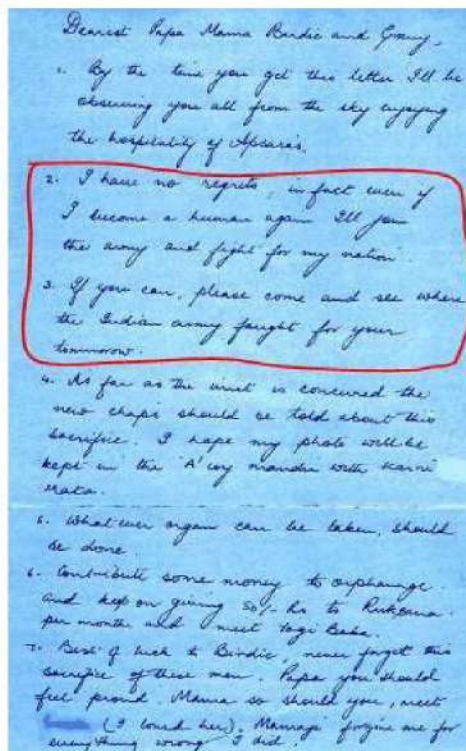 Dearest Papa Mama Birdie and Granny,
1. By the time you get this letter I'll be
observing you all from the sky enjoying
the hospitality of Apsaras.
2. I have no regrets, in fact even if
I become a human again I'll join
the army and fight for my nation.
3. If you can, please come and see where
the Indian army fought for your
tomorrow.
4. As far as the unit is concerned the
new chaps should be told about this
sacrifice. I hope my photo will be
kept in the 'A' coy mandir with Karni
Mata.
5. Whatever organ can be taken, should
be done.
6. Contribute some money to orphanage
and keep on giving 50/- Rs to Ruksana
per month and meet Yogi Baba.
7. Best of luck to Birdie, never forget this
sacrifice of these men. Papa you should
feel proud. Mama so should you, meet
(I loved her). Mamaji forgive me for
everything wrong I did.